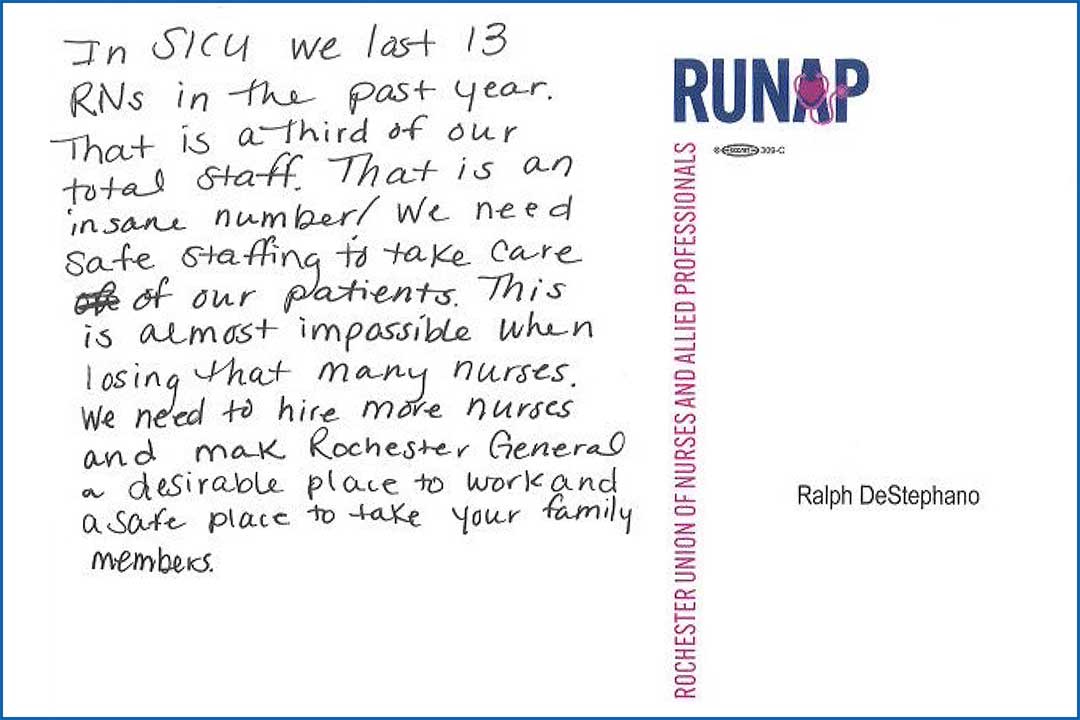 In SICU we last 13
RNs in the past year.
That is a third of our
total staff. That is an
insane number! We need
safe staffing to take care
of our patients. This
is almost impassible when
losing that many nurses.
We need to hire more nurses
and mak Rochester General
a desirable place to work and
a safe place to take your family
members.
RUNAP
309-C
ROCHESTER UNION OF NURSES AND ALLIED PROFESSIONALS
Ralph DeStephano